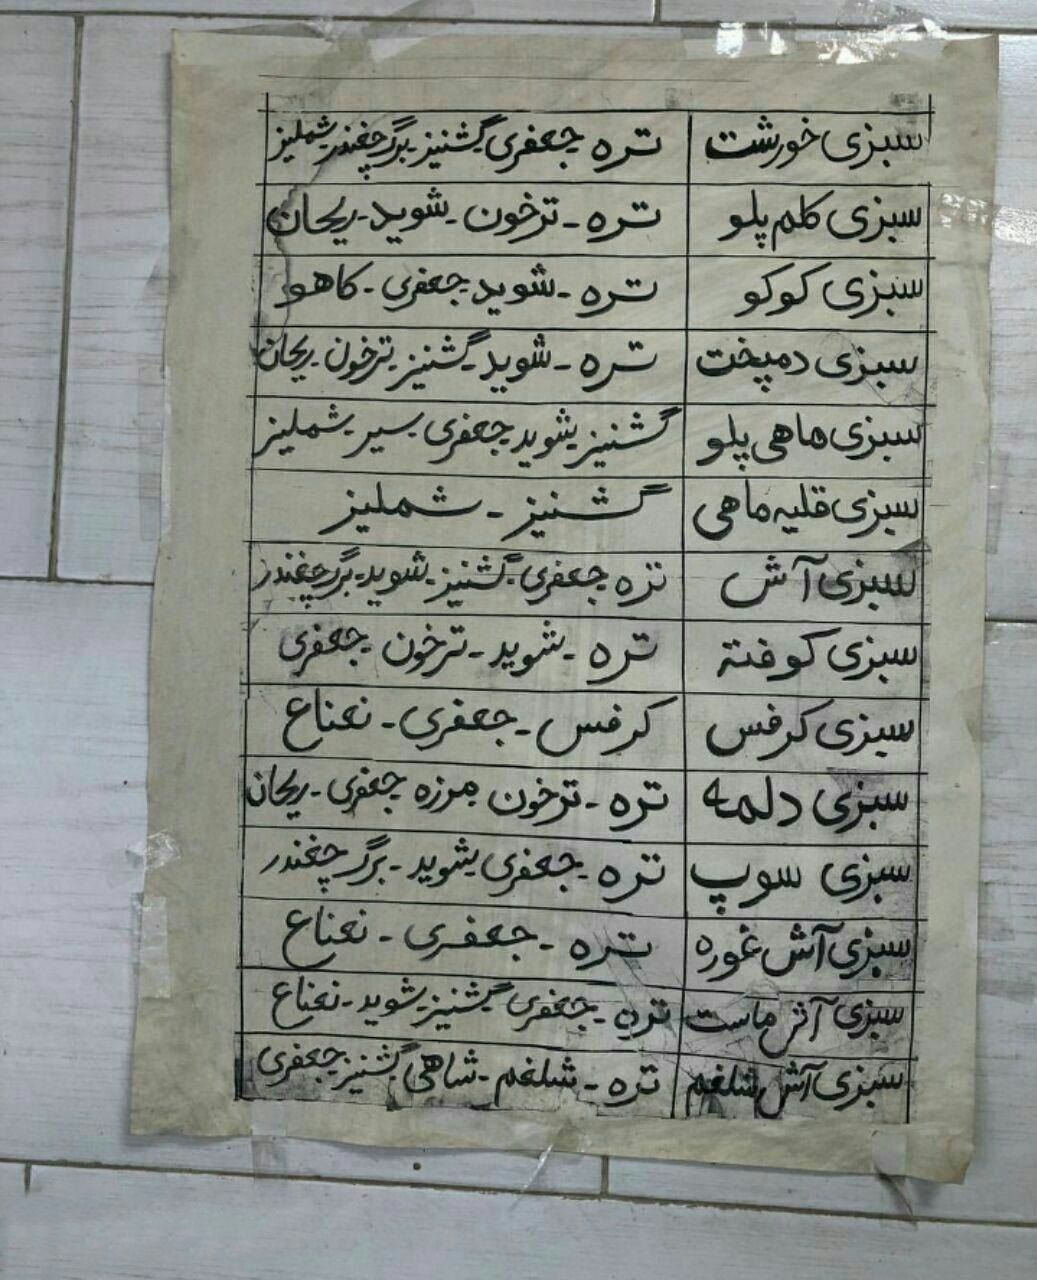 سبزی خورشت تره جعفری گشنیز برگ چغندر شملیز
سبزی کلم پلو تره - ترخون - شوید - ریحان
سبزی کوکو تره - شوید - جعفری - کاهو
سبزی دمپخت تره - شوید - گشنیز - ترخون - ریحان
سبزی ماهی پلو گشنیز شوید جعفری - سیر - شملیز
سبزی قلیه ماهی گشنیز - شملیز
سبزی آش تره جعفری - گشنیز - شوید - برگ چغندر
سبزی کوفته تره - شوید - ترخون - جعفری
سبزی کرفس کرفس - جعفری - نعناع
سبزی دلمه تره - ترخون مرزه جعفری - ریحان
سبزی سوپ تره - جعفری شوید - برگ چغندر
سبزی آش غوره تره - جعفری - نعناع
سبزی آش ماست تره - جعفری گشنیز - شوید - نعناع
سبزی آش شلغم تره - شلغم - شاهی گشنیز جعفری